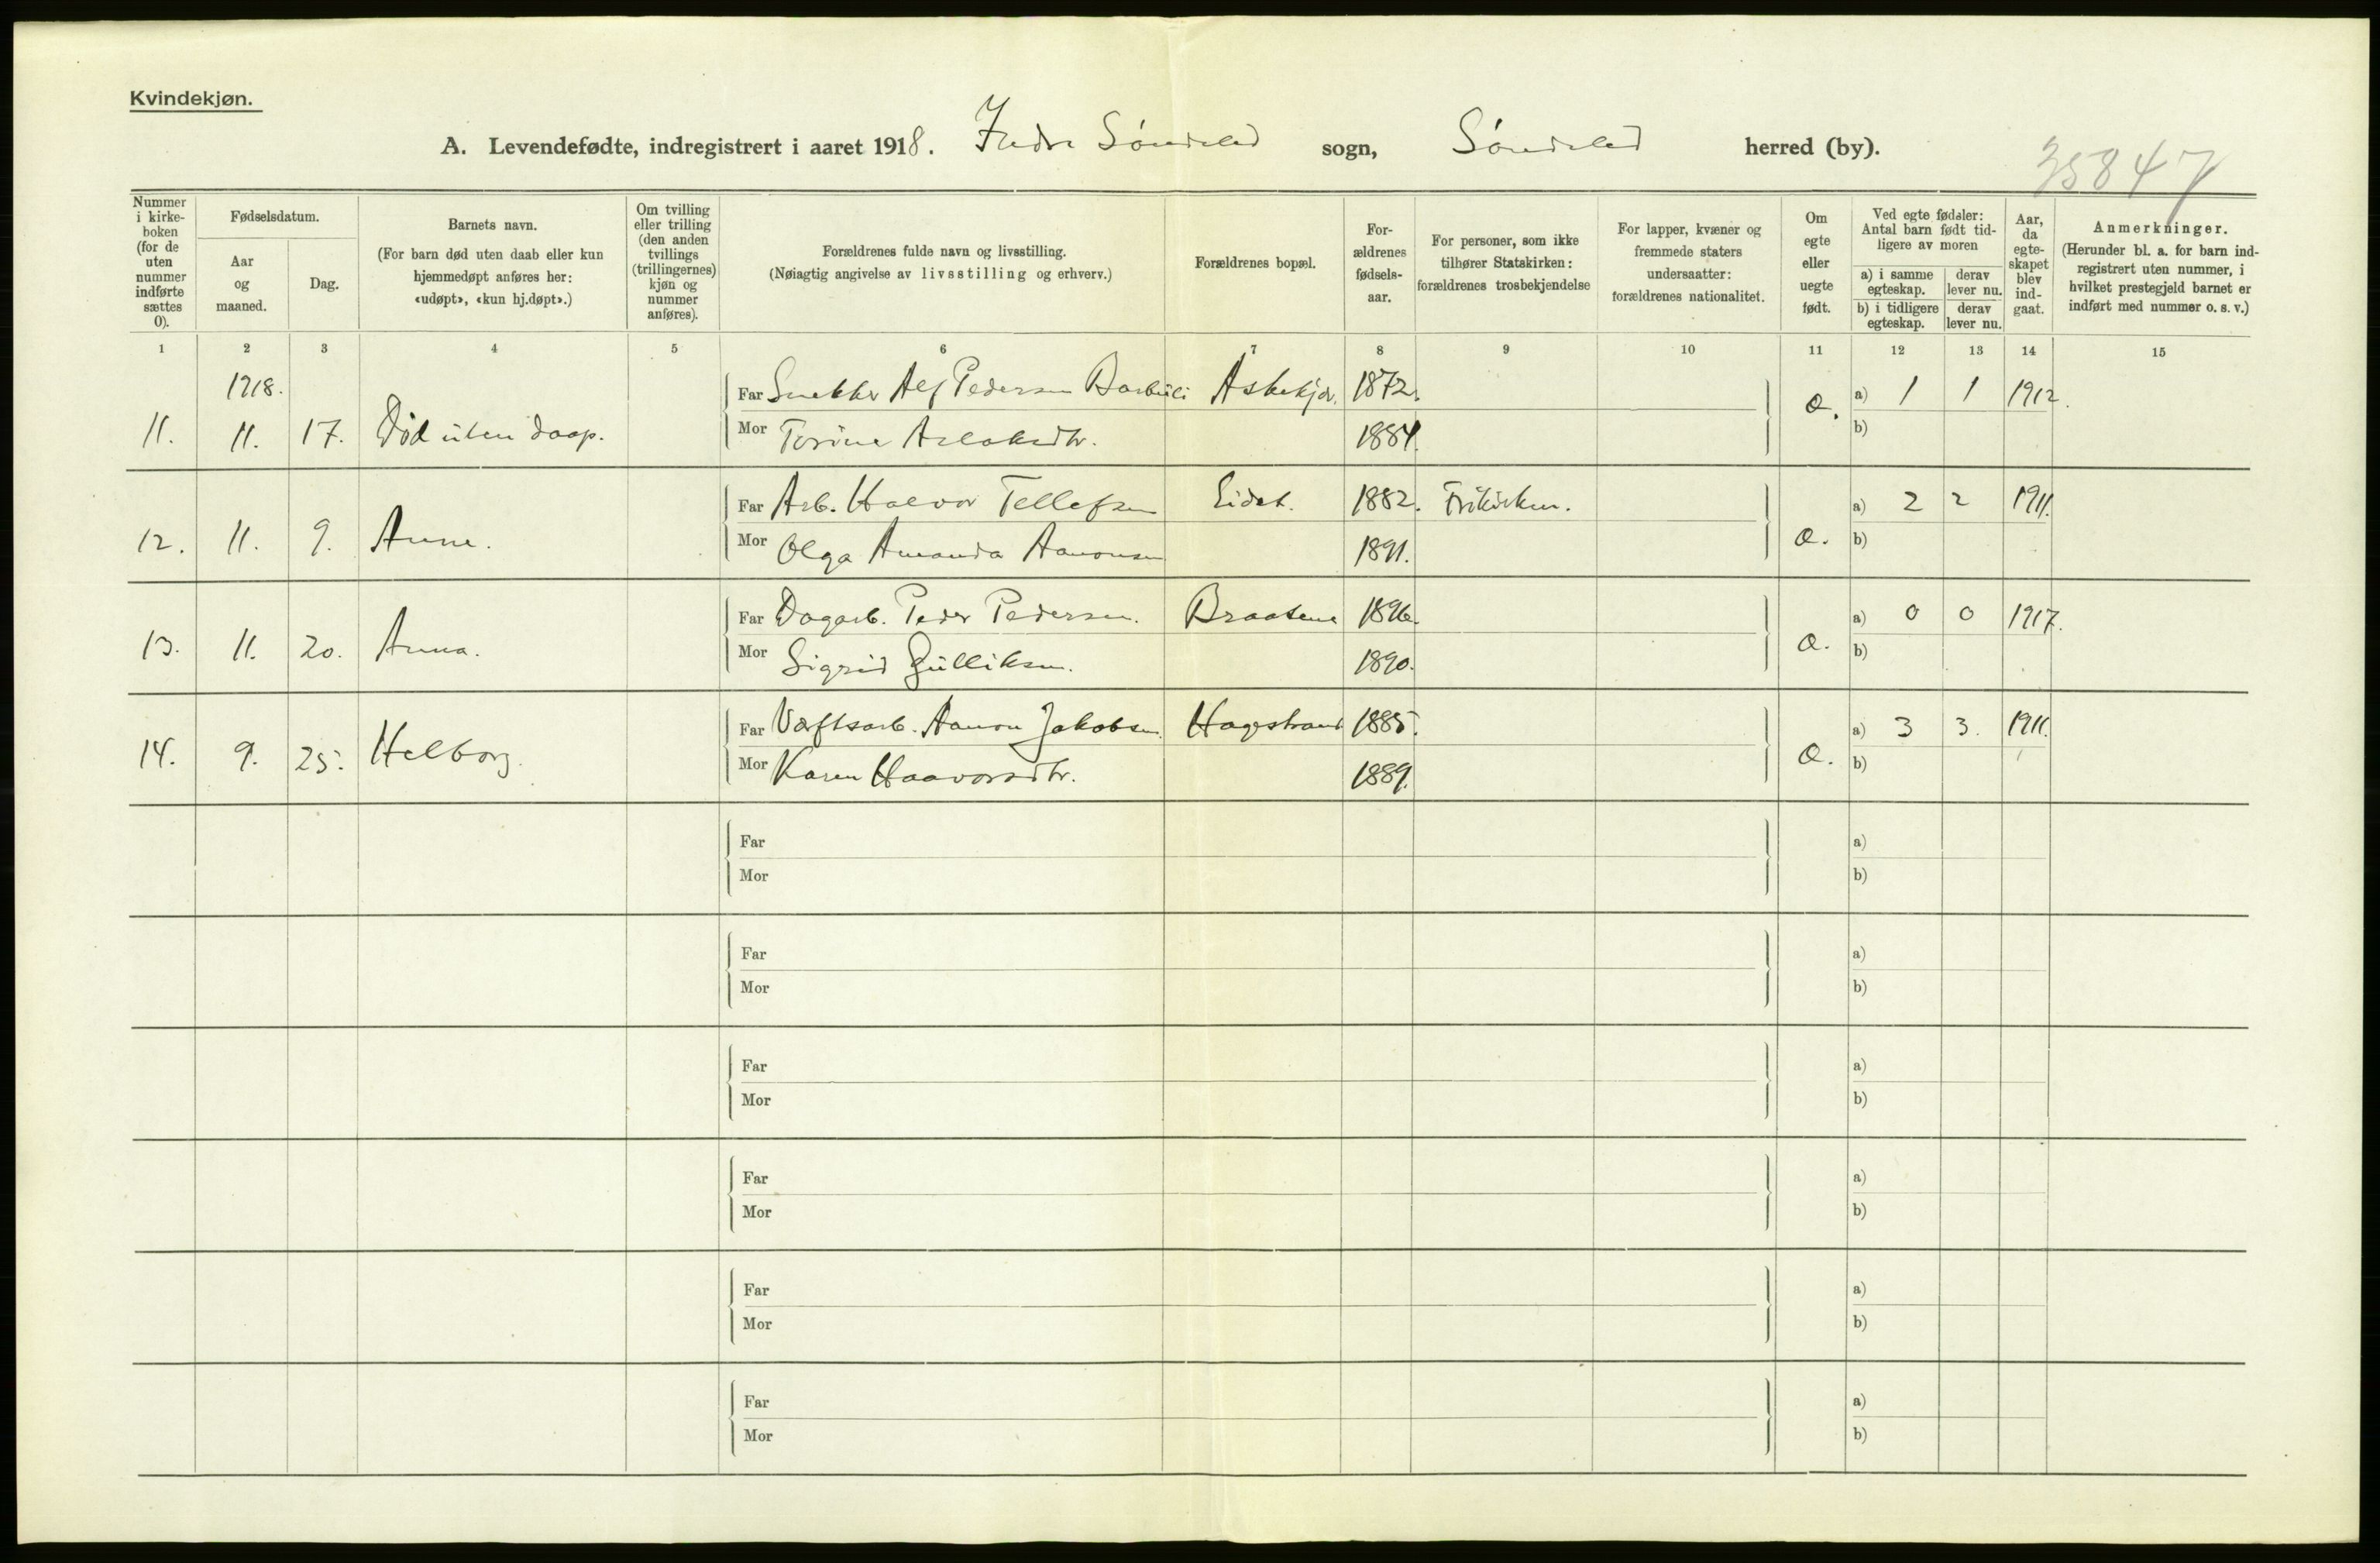 Kvindekjøn.
A. Levendefødte, indregistrert i aaret 1918. Indre Søndeled sogn, Søndeled herred (by).
35847
Nummer i kirkeboken (for de uten nummer indførte sættes 0).
Fødselsdatum.
Aar og maaned.
Dag.
Barnets navn.
(For barn død uten daab eller kun hjemmedøpt anføres her: «udøpt», «kun hj.døpt».)
Om tvilling eller trilling (den anden tvillings (trillingernes) kjøn og nummer anføres).
Forældrenes fulde navn og livsstilling.
(Nøiagtig angivelse av livsstilling og erhverv.)
Forældrenes bopæl.
For-ældrenes fødsels-aar.
For personer, som ikke tilhører Statskirken: forældrenes trosbekjendelse
For lapper, kvæner og fremmede staters undersaatter: forældrenes nationalitet.
Om egte eller uegte født.
Ved egte fødsler: Antal barn født tidligere av moren
a) i samme egteskap. derav lever nu.
b) i tidligere egteskap. derav lever nu.
Aar, da egteskapet blev indgaat.
Anmerkninger.
(Herunder bl. a. for barn indregistrert uten nummer, i hvilket prestegjeld barnet er indført med nummer o. s. v.)
1 2 3 4 5 6 7 8 9 10 11 12 13 14 15
1918.
Far Snekker Alf Pedersen Askekjær. 1872. a) 1 1 1912.
11. 11. 17. Død uten daap. Mor Torine Aslaksdtr. 1884. b)
Far Arb. Halvor Tellefsen Eidet. 1882. Frikirken. a) 2 2 1911.
12. 11. 9. Anne. Mor Olga Amanda Aanonsen 1891. b)
Far Dagarb. Peder Pedersen. Braatene 1896. a) 0 0 1917.
13. 11. 20. Anna. Mor Sigrid Gulliksen. 1890. b)
Far Værftsarb. Aanon Jakobsen. Hagestrand 1885. a) 3 3. 1911.
14. 9. 25. Helborg. Mor Karen Haavorsdtr. 1889. b)
Far a)
Mor b)
Far a)
Mor b)
Far a)
Mor b)
Far a)
Mor b)
Far a)
Mor b)
Far a)
Mor b)